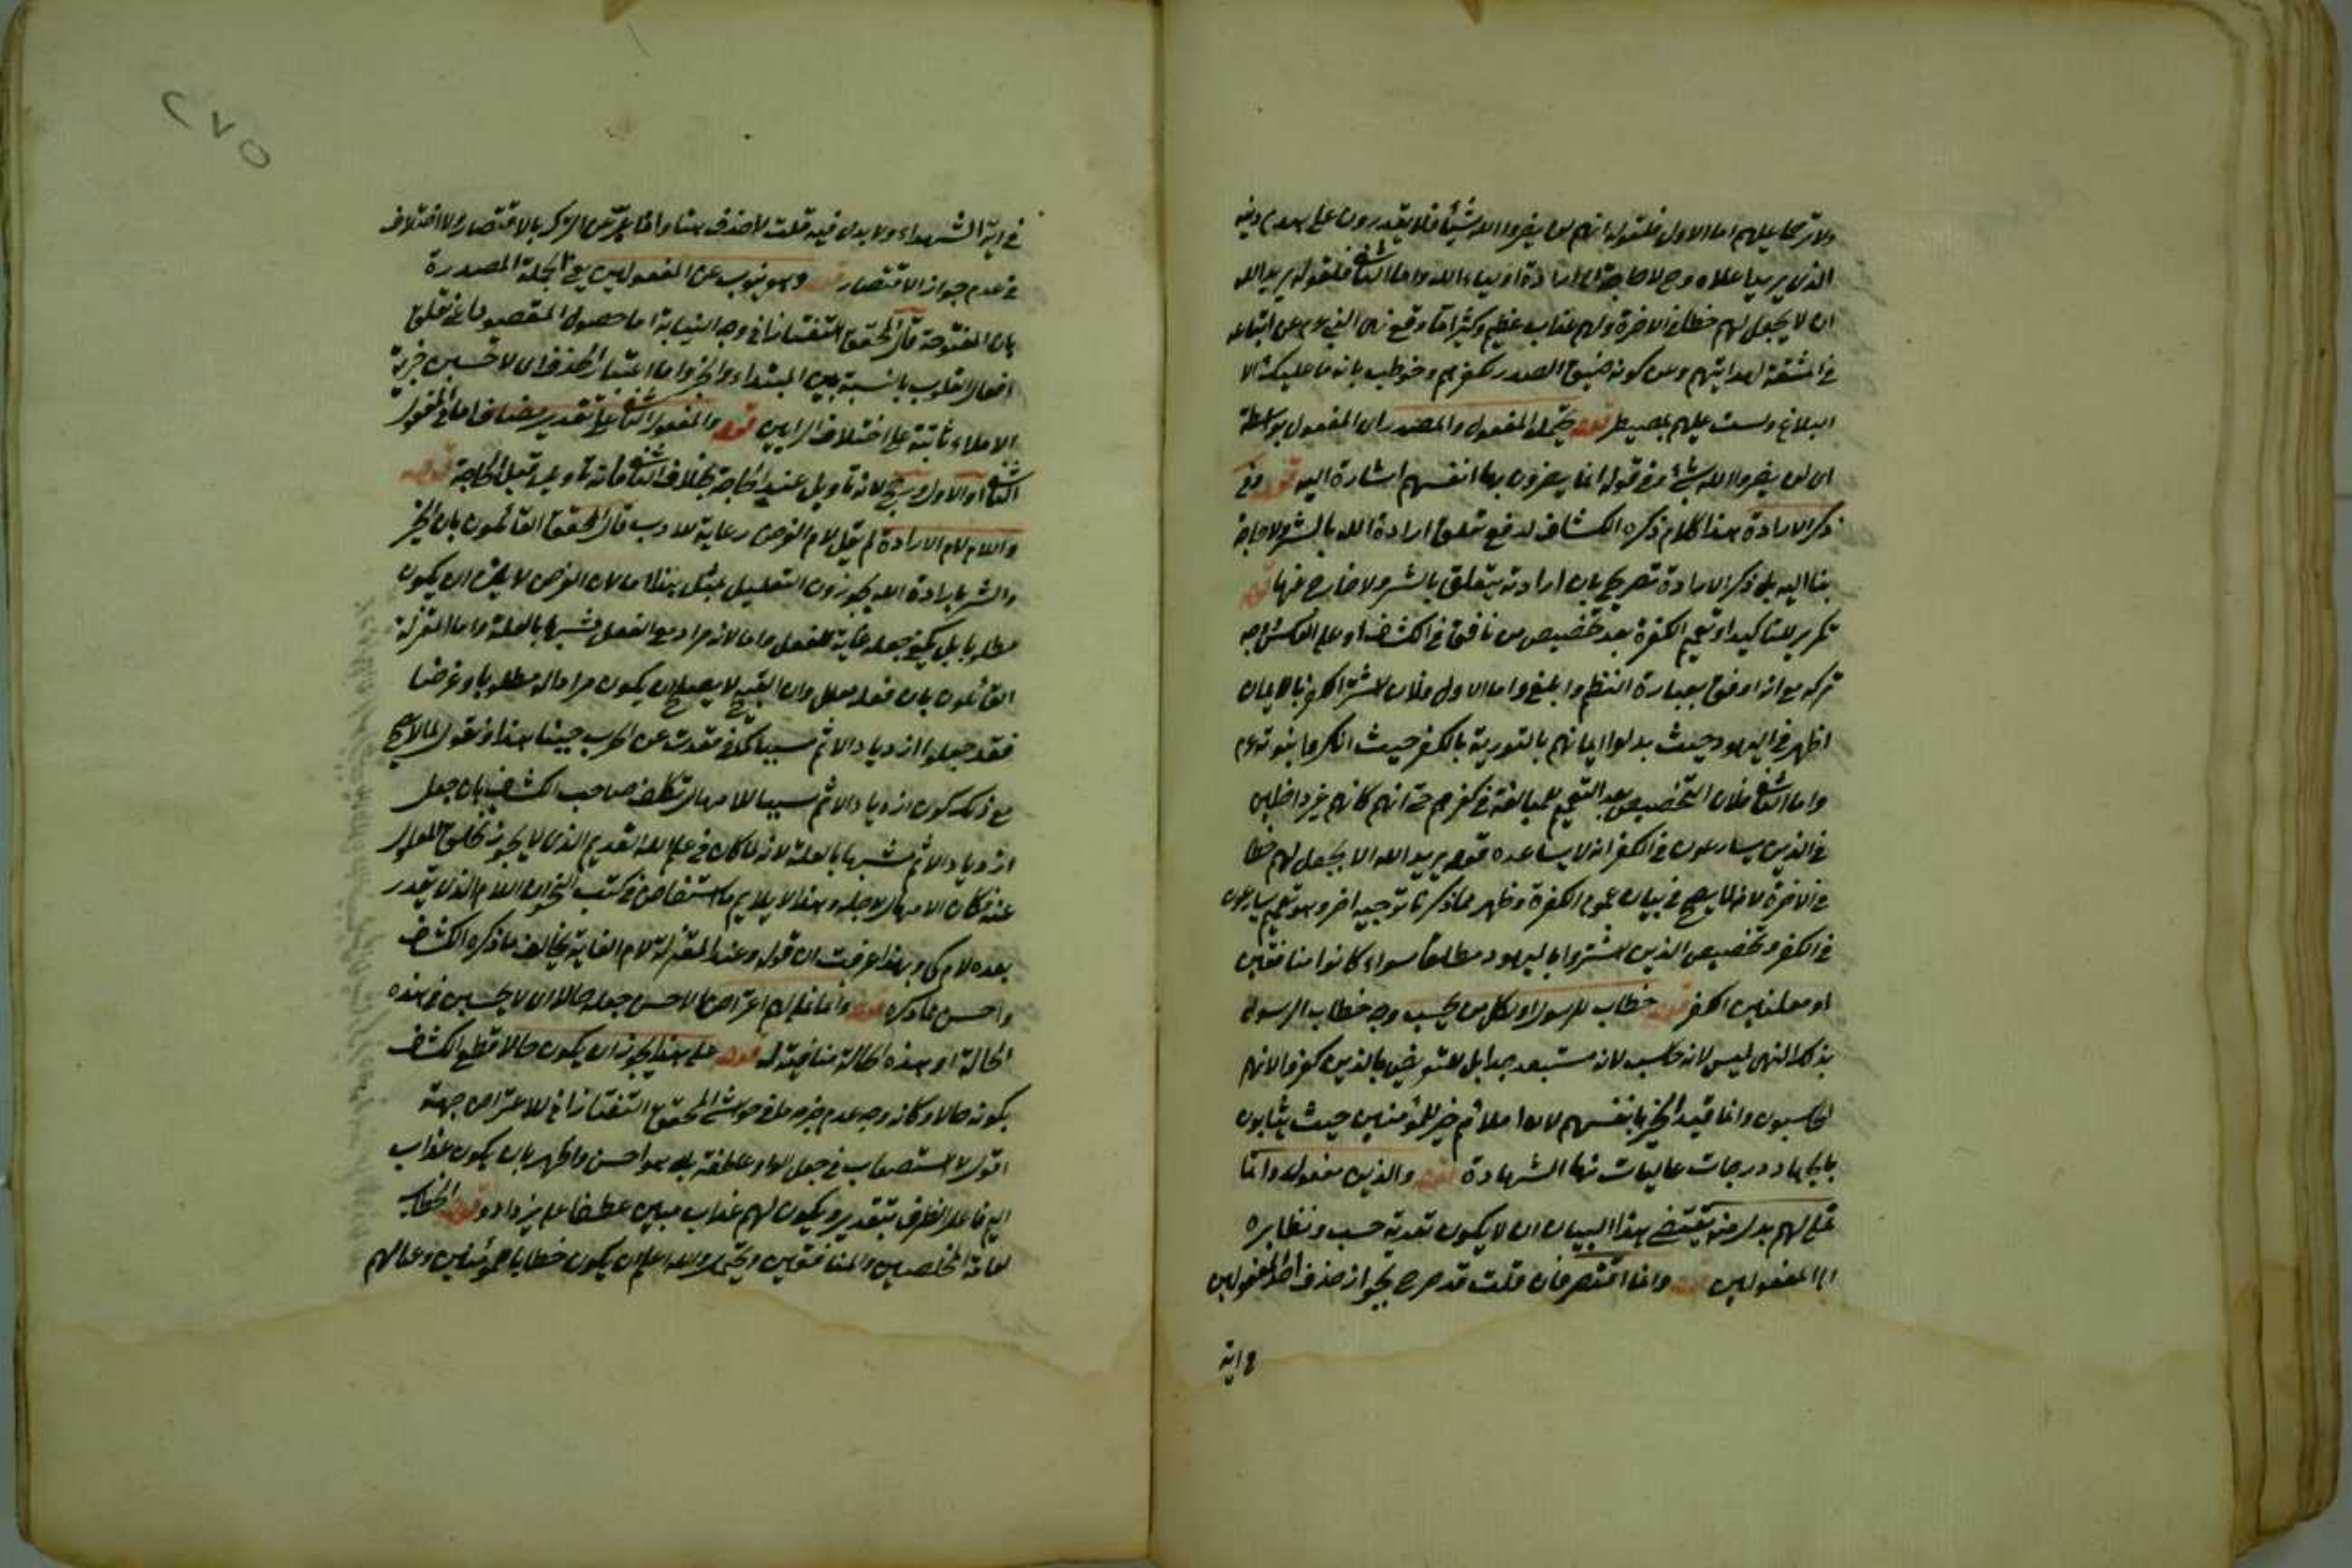 ولا ترحما عليهم اما الاول فلقوله انهم لن يضروا الله شيئا فلا يقدرون على هدم دينه
الذي يريد اعلاه وح لا حاجة الى ارادة اولياء الله واما الثاني فلقوله يريد الله
ان لا يجعل لهم حظا في الآخرة ولهم عذاب عظيم وكثيرا ما وقع نهى النبي عم عن اتباعه
في المشقة لهدايتهم وعن كونه ضيق الصدر بكفرهم وخوطب بانه ما عليك الا
البلاغ ولست عليهم بمصيطر قوله يحتمل المفعول والمصدر اي المفعول بواسطة
اي لن يضروا الله بشيء وفي قوله انما يضرون بها انفسهم اشارة اليه قوله وفي
ذكر الارادة هذا كلام ذكره الكشاف لدفع تعلق ارادة الله بالشر ولا حاجة
بنا اليه بل ذكر الارادة تصريح بان ارادته يتعلق بالشر ولا خارج عنها قوله
تكرير للتاكيد او تعميم الكفرة بعد تخصيص من نافق في الكشاف او على العكس وجه
تركه مع انه اوفق بعبارة النظم وابلغ واما الاول فلان اشترى الكفر بالايمان
اظهر في اليهود حيث بدلوا ايمانهم بالتورية بالكفر حيث انكروا بنوته عم
واما الثاني فلان التخصيص بعد التعميم للمبالغة في كفرهم حتى انهم كانهم غير داخلين
في الذين يسارعون في الكفر انه لا يساعده قوله يريد الله الا يجعل لهم حظا
في الآخرة لانه لا يصح في بيان عموم الكفرة وظهر مما ذكرنا توجيه اخر وهو تعميم يسارعون
في الكفر وتخصيص الذين اشتروا باليهود مطلقا سواء كانوا منافقين
او معلنين الكفر قوله خطاب للرسول او لكل من يحسب وجه خطاب الرسول
بذلك النهى ليس لانه حاسب لانه مستبعد جدا بل تعريض بالذين كفروا لانهم
الحاسبون وانما قيد الخير بانفسهم لان املائهم خير للمؤمنين حيث يثابون
بايجاد درجات عاليات منها الشهادة قوله والذين مفعوله وانما
نملي لهم بدل منه يقتضي هذا البيان ان لا يكون تعدية حسب ونظايره
الى المفعولين قوله وانما اقتصر فان قلت قد صرح بجواز حذف احد المفعولين
في اية
٢٧٥
في اية الشهداء ولا بدل فيه قلت لا حذف هنا وانما عبر عن الترك بالاقتصار ولا اختلاف
في عدم جواز الاقتصار قوله وهو ينوب عن المفعولين يعني الجملة المصدرة
بان المفتوحة قال المحقق التفتازاني وجه النيابة اما حصول المقصود اعني تعلق
افعال القلوب بالنسبة بين المبتداء والخبر واما اعتبار الحذف اي لا تحسبن خيرية
الاملاء ثابتة على اختلاف الرايين قوله والمفعول الثاني على تقدير مضاف اما في المفعول
الثاني او الاول وريح لانه تاويل عند الحاجة بخلاف الثاني فانه تاويل قبل الحاجة قوله
واللام لام الارادة لم يقل لام الغرض رعاية للادب قال المحقق القائلون بان الخير
والشر بارادة الله يجوزون التعليل بمثل هذا اما لان الغرض لا يلزم ان يكون
مطلوبا بل يكفي جعله غاية للفعل واما لانه مراد مع الفعل فشبهها بالعلة واما المعتزلة
القائلون بان فعله معلل وان القبيح لا يصلح ان يكون مرادا له مطلوبا وغرضا
فقد جعلوا ازدياد الاثم سببا كما في قعدت عن الحرب جبنا هذا ونقول لما لا يصح
مع ذلك كون ازدياد الاثم سببا للامهال تكلف صاحب الكشاف بان جعل
ازدياد الاثم شبيها بالعلة لانه لما كان في علم الله القديم الذي لا يجوز تخلف المعلول
عنه فكان الامهال لاجله وهذا لا يلايم ما استفاض في كتب النحو ان اللام الذي يقدر
بعده لام كي وبهذا عرفت ان قوله وعند المعتزلة لام الغاية يخالف ما ذكره الكشاف
واحسن مما ذكره قوله وانما نملي لهم اعتراض الاحسن جعله حالا اي لا يحسبن في هذه
الحالة او هذه الحالة منافية له قوله على هذا يجوز ان يكون حالا قطع الكشاف
بكونه حالا وكانه وجه عدم جزمه ما في حواشي المحقق التفتازاني للاعتراض جهة
اقول لا استصعاب في جعل الواو عاطفة بل هو احسن واظهر بان يكون عذاب
اليم فاعل الظرف بتقدير ويكون لهم عذاب مهين عطفا على يزدادوا قوله الخطاب
لعامة المخلصين والمنافقين ويحتمل والله اعلم ان يكون خطابا للمؤمنين وعالهم